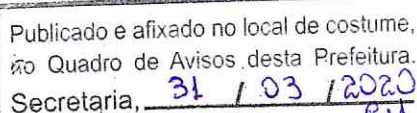 Publicado e afixado no local de costume,
no Quadro de Avisos desta Prefeitura.
Secretaria, 31 / 03 / 2020